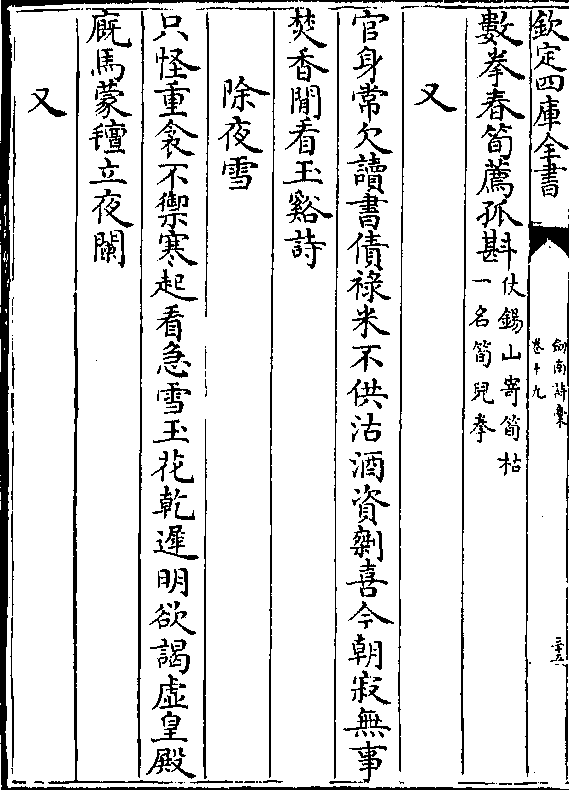 欽定四庫全書
劒南詩稾
卷十九
三十五
數拳春筍薦孤斟
仗錫山寄筍枯
一名筍兒拳
又
官身常欠讀書債祿米不供沽酒資剩喜今朝寂無事
焚香閒看玉谿詩
除夜雪
只怪重衾不禦寒起看急雪玉花乾遲明欲謁虛皇殿
廐馬蒙氊立夜闌
又